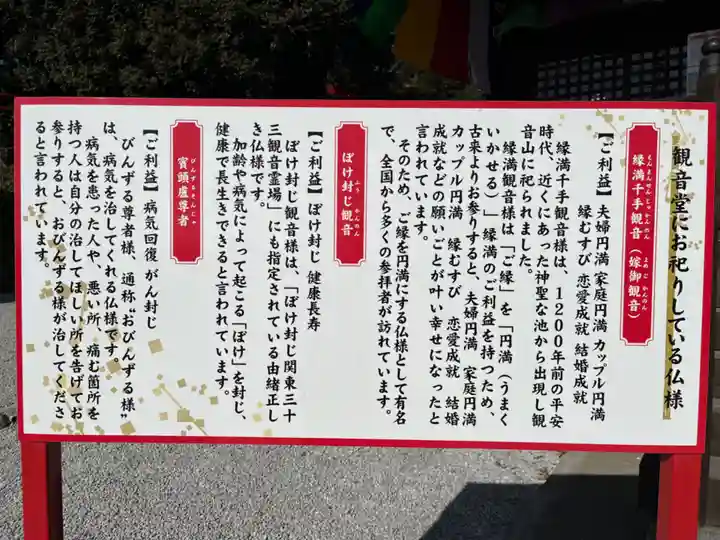 観音堂にお祀りしている仏様
縁満千手観音（嫁御観音）
えんまんせんじゅかんのん　よめごかんのん
【ご利益】夫婦円満 家庭円満 カップル円満
縁むすび 恋愛成就 結婚成就
縁満千手観音様は、1200年前の平安
時代、近くにあった神聖な池から出現し観
音山に祀られました。
縁満観音様は「ご縁」を「円満（うまく
いかせる）」縁満のご利益を持つため、
古来よりお参りすると、夫婦円満　家庭円満
カップル円満　縁むすび　恋愛成就　結婚
成就などの願いごとが叶い幸せになったと
言われています。
そのため、ご縁を円満にする仏様として有名
で、全国から多くの参拝者が訪れています。
ぼけ封じ観音
ふう　かんのん
【ご利益】ぼけ封じ 健康長寿
ぼけ封じ観音様は、「ぼけ封じ関東三十
三観音霊場」にも指定されている由緒正し
き仏様です。
加齢や病気によって起こる「ぼけ」を封じ、
健康で長生きできると言われています。
賓頭盧尊者
びんずるそんじゃ
【ご利益】病気回復 がん封じ
びんずる尊者様、通称“おびんずる様”
は、病気を治してくれる仏様です。
病気を患った人や、悪い所、痛む箇所を
持つ人は自分の治してほしい所を告げてお
参りすると、おびんずる様が治してくださ
ると言われています。